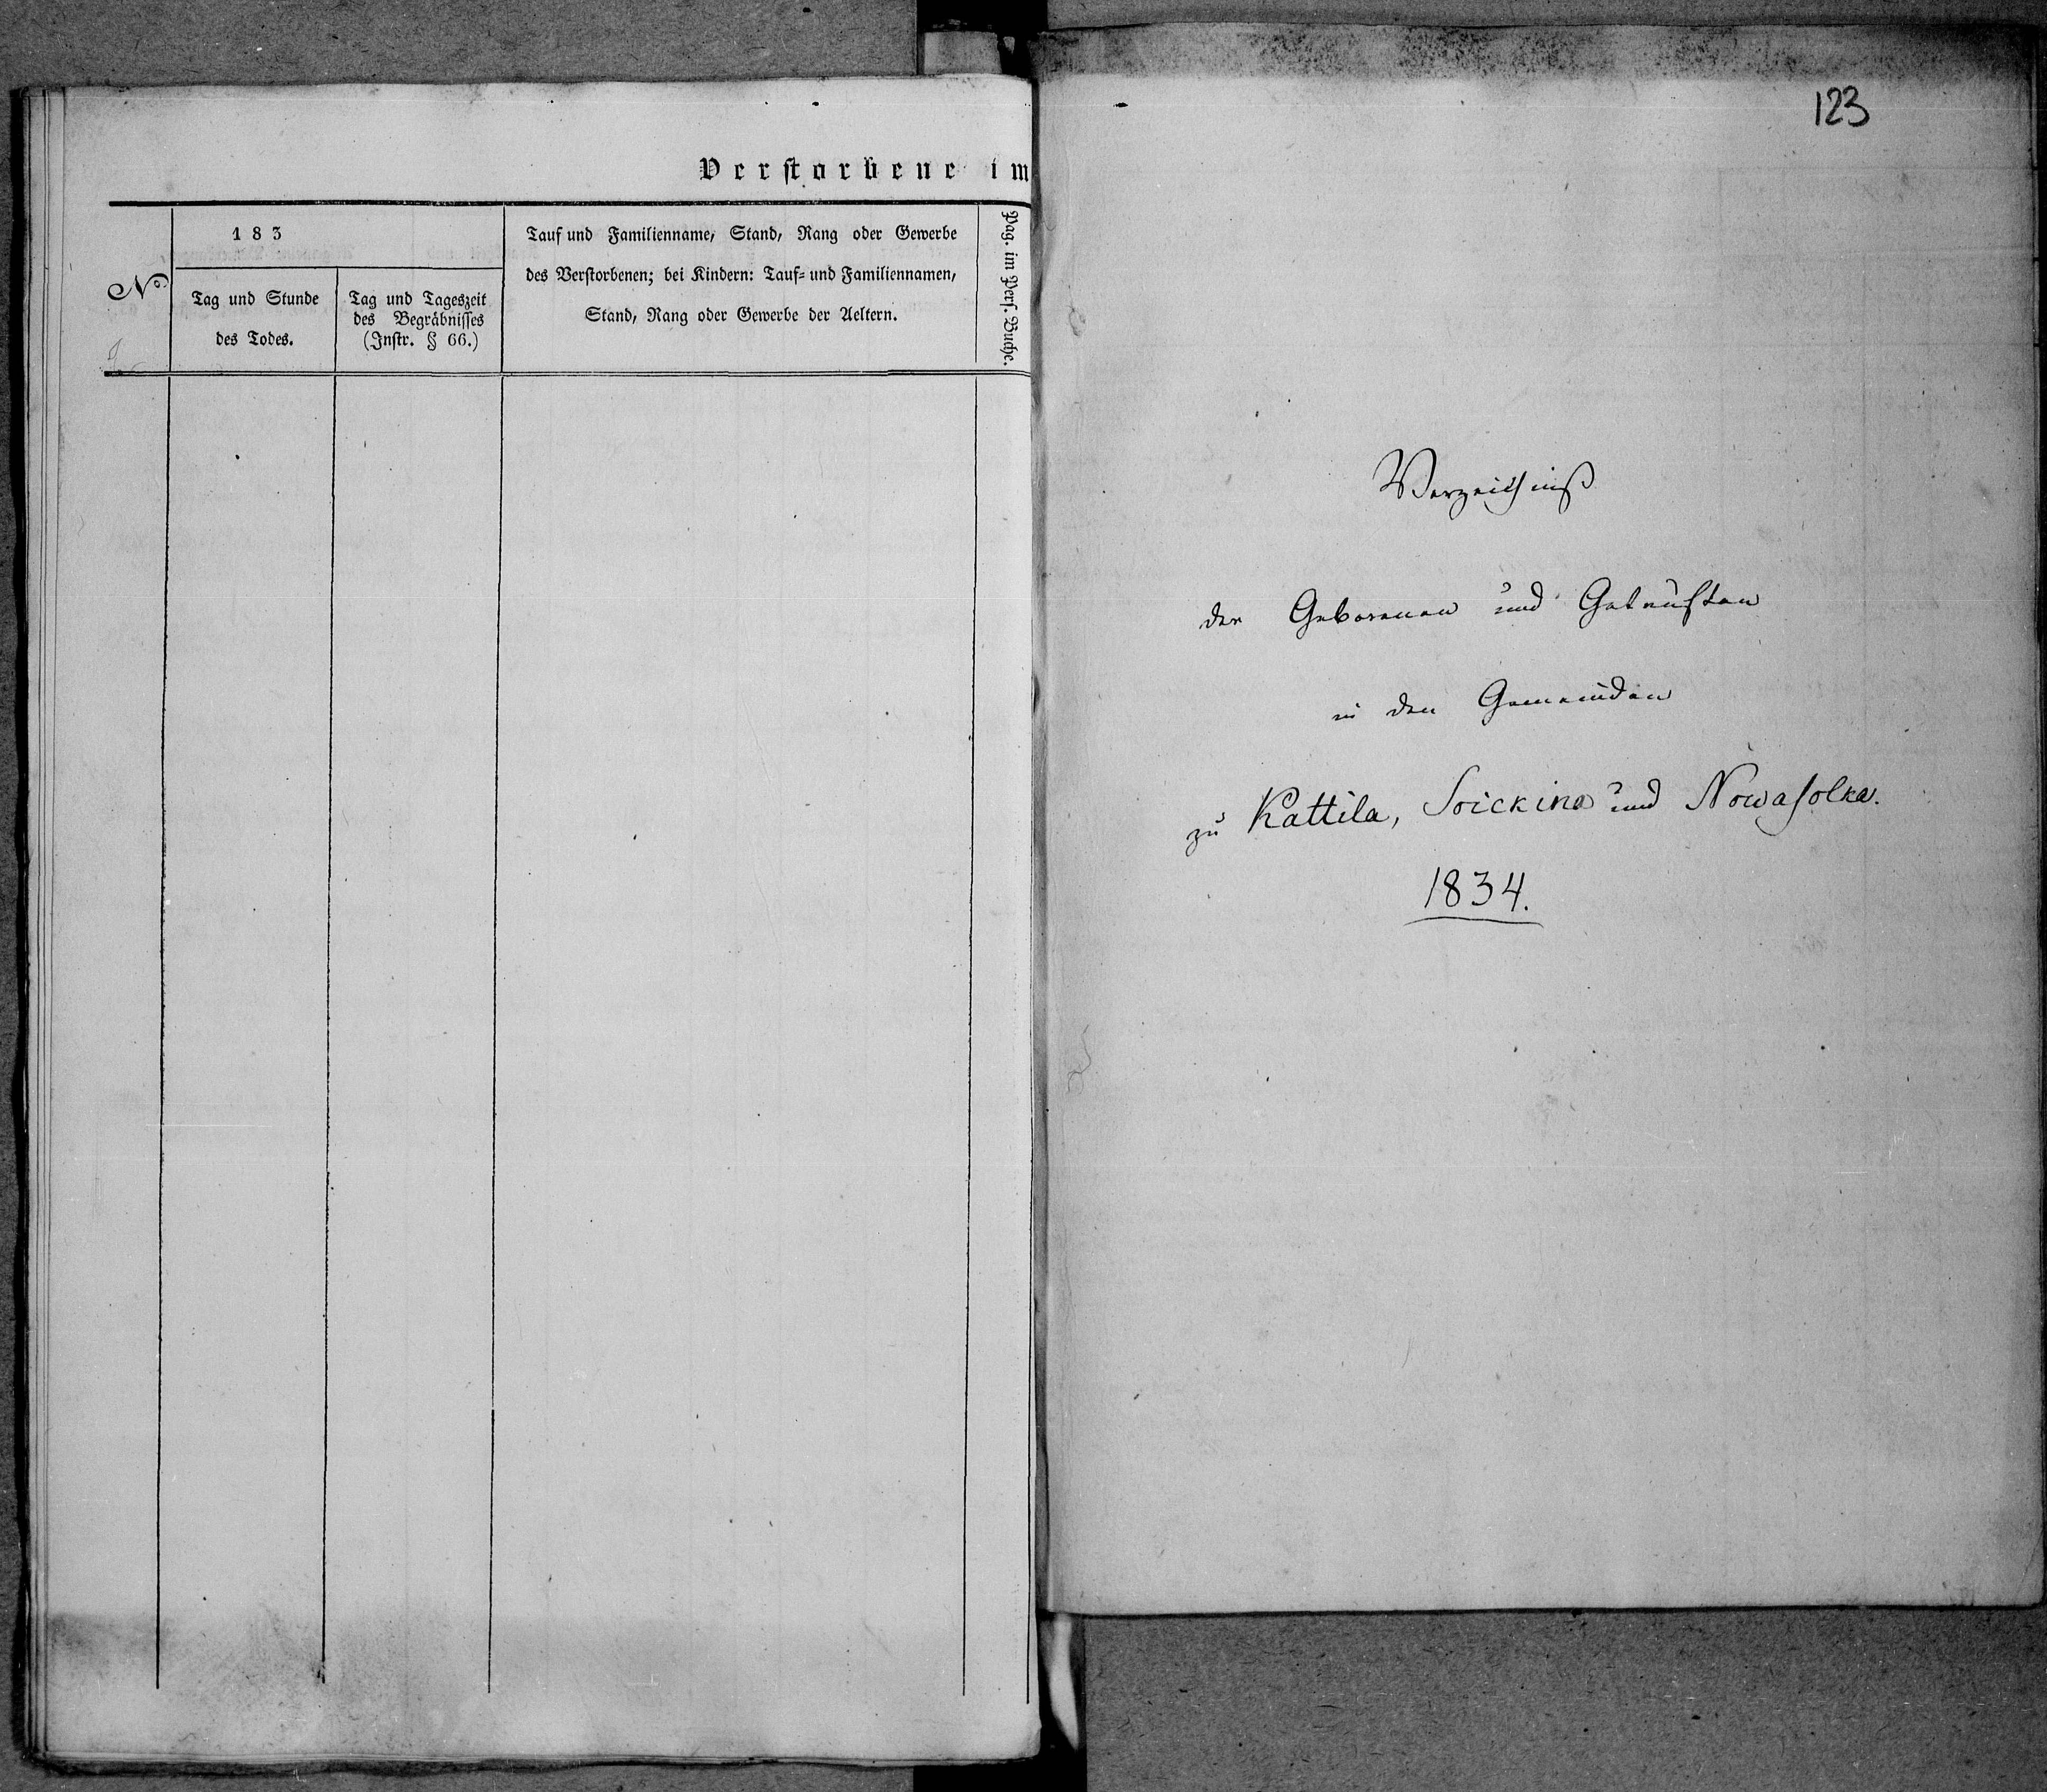 Verstorbene im
No
183
Tag und Stunde
des Todes.
Tag und Tageszeit
des Begräbnisses
(Instr. § 66.)
Tauf und Familienname, Stand, Rang oder Gewerbe
des Verstorbenen; bei Kindern: Tauf- und Familiennamen,
Stand, Rang oder Gewerbe der Aeltern.
Pag. im Pers. Buche.
123
Verzeichniß
der Geborenen und Getauften
in den Gemeinden
zu Kattila, Soickina und Nowasolka.
1834.